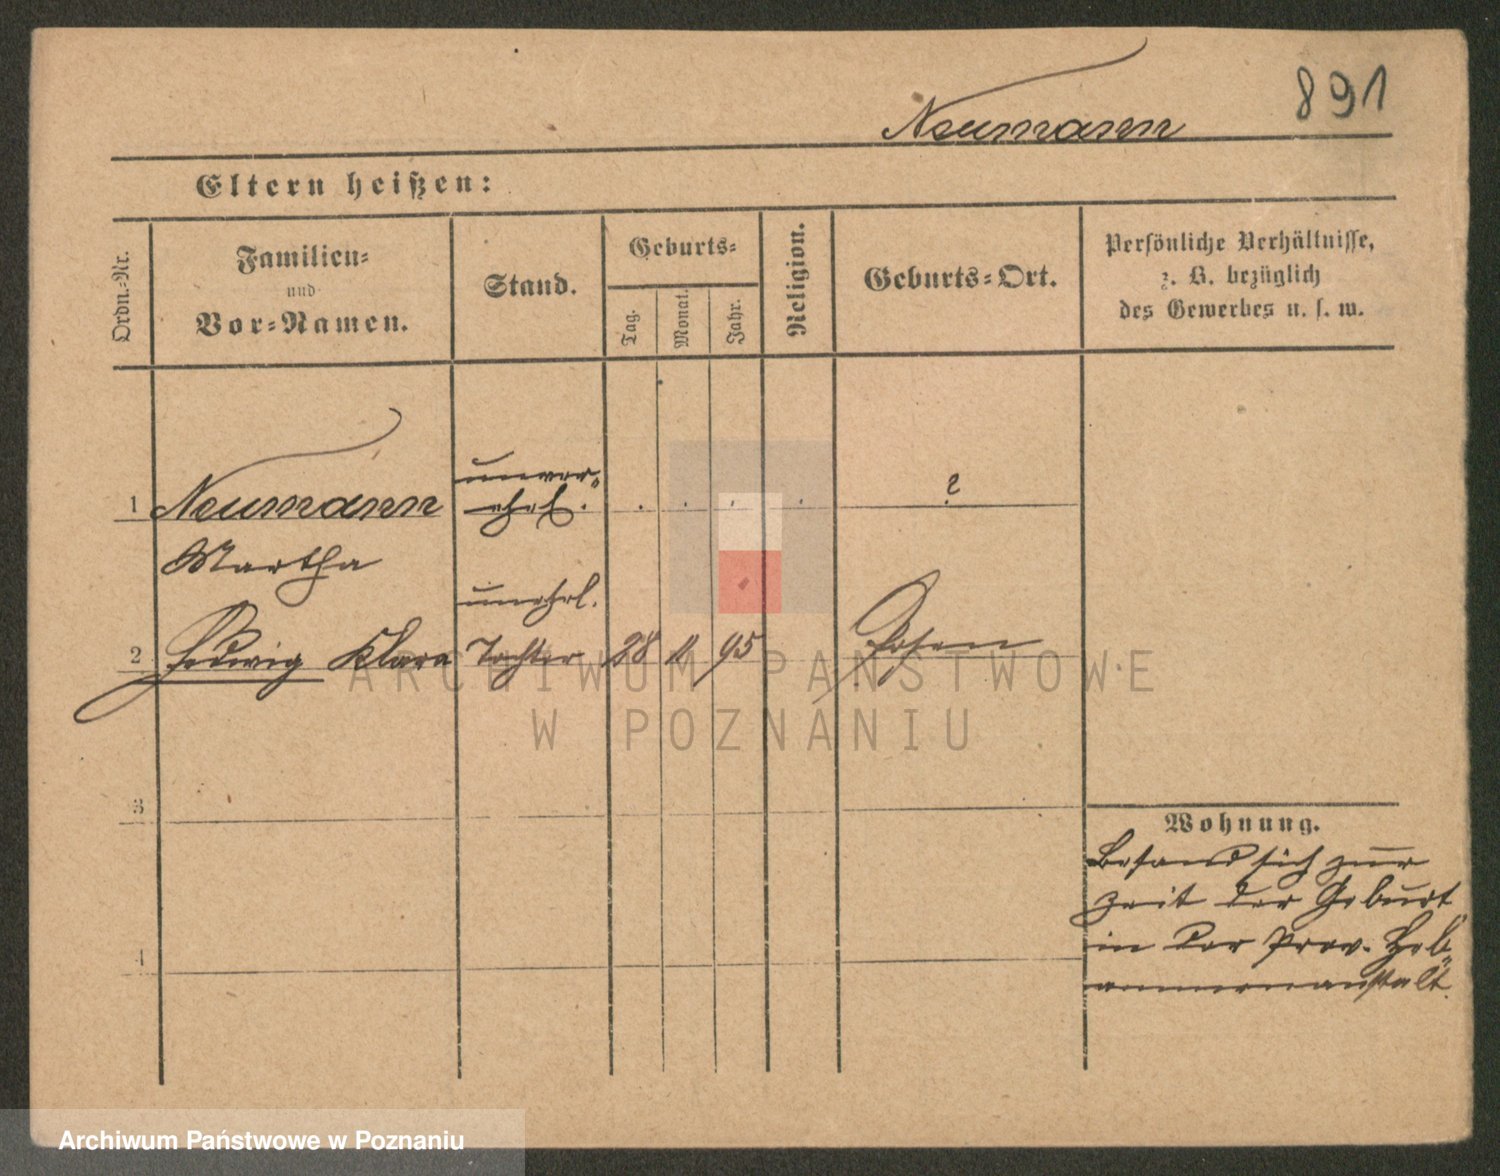 891
Neumann
Eltern heißen:
Ordn.-Nr.
Familien-
und
Vor-Namen.
Stand.
Geburts-
Tag.
Monat.
Jahr.
Religion.
Geburts-Ort.
Persönliche Verhältnisse,
z. B. bezüglich
des Gewerbes u. s. w.
unver-
1 Neumann ehel. ?
Martha
unehel.
2 Hedwig Klara Tochter 28 11 95 Posen
ARCHIWUM PAŃSTWOWE
W POZNANIU
3
Wohnung.
Befand sich zur
Zeit der Geburt
in der Prov. Heb-
ammenanstalt.
4
Archiwum Państwowe w Poznaniu